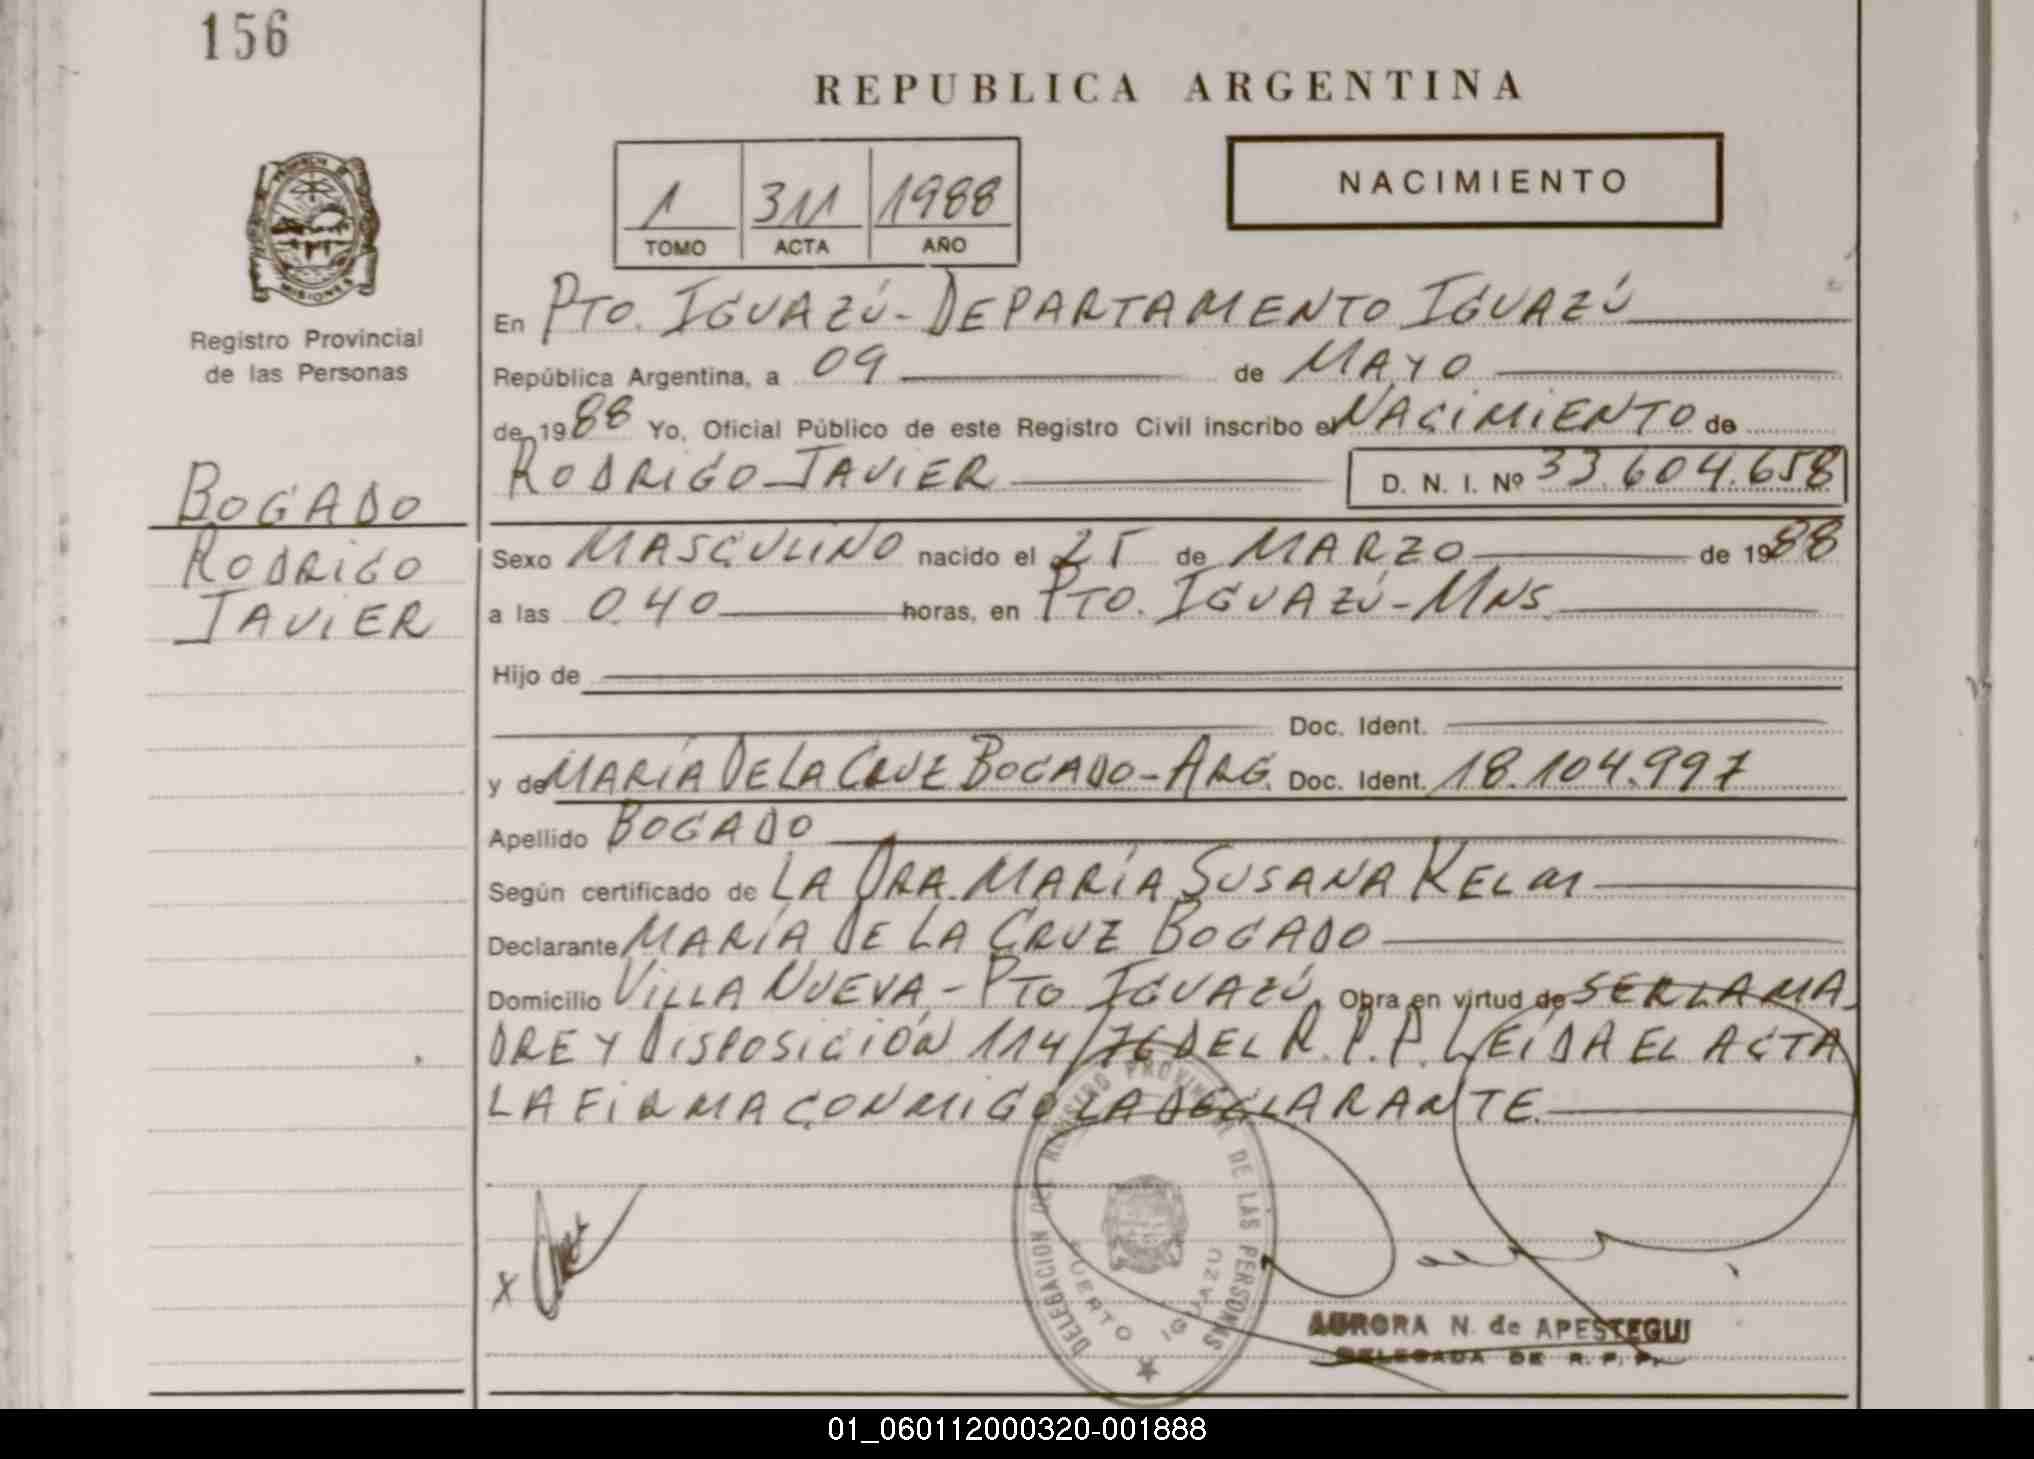 156
REPUBLICA ARGENTINA
NACIMIENTO
1 311 1988
TOMO ACTA AÑO
PROVINCIA DE
MISIONES
Registro Provincial
de las Personas
BOGADO
RODRIGO
JAVIER
En PTO. IGUAZÚ - DEPARTAMENTO IGUAZÚ
República Argentina, a 09 de MAYO
de 1988 Yo, Oficial Público de este Registro Civil inscribo el NACIMIENTO de
RODRIGO JAVIER D. N. I. Nº 33.604.658
Sexo MASCULINO nacido el 25 de MARZO de 1988
a las 0.40 horas, en PTO. IGUAZÚ - MNS.
Hijo de
Doc. Ident.
y de MARÍA DE LA CRUZ BOGADO - ARG. Doc. Ident. 18.104.997
Apellido BOGADO
Según certificado de LA DRA. MARÍA SUSANA KELM
Declarante MARÍA DE LA CRUZ BOGADO
Domicilio VILLA NUEVA - PTO IGUAZÚ Obra en virtud de SER LA MA
DRE Y DISPOSICIÓN 114/76 DEL R.P.P. LEÍDA EL ACTA
LA FIRMA CONMIGO LA DECLARANTE.
X
DELEGACION DEL REGISTRO PROVINCIAL DE LAS PERSONAS
PUERTO IGUAZU
AURORA N. de APESTEGUI
DELEGADA DE R. P. P.
01_060112000320-001888